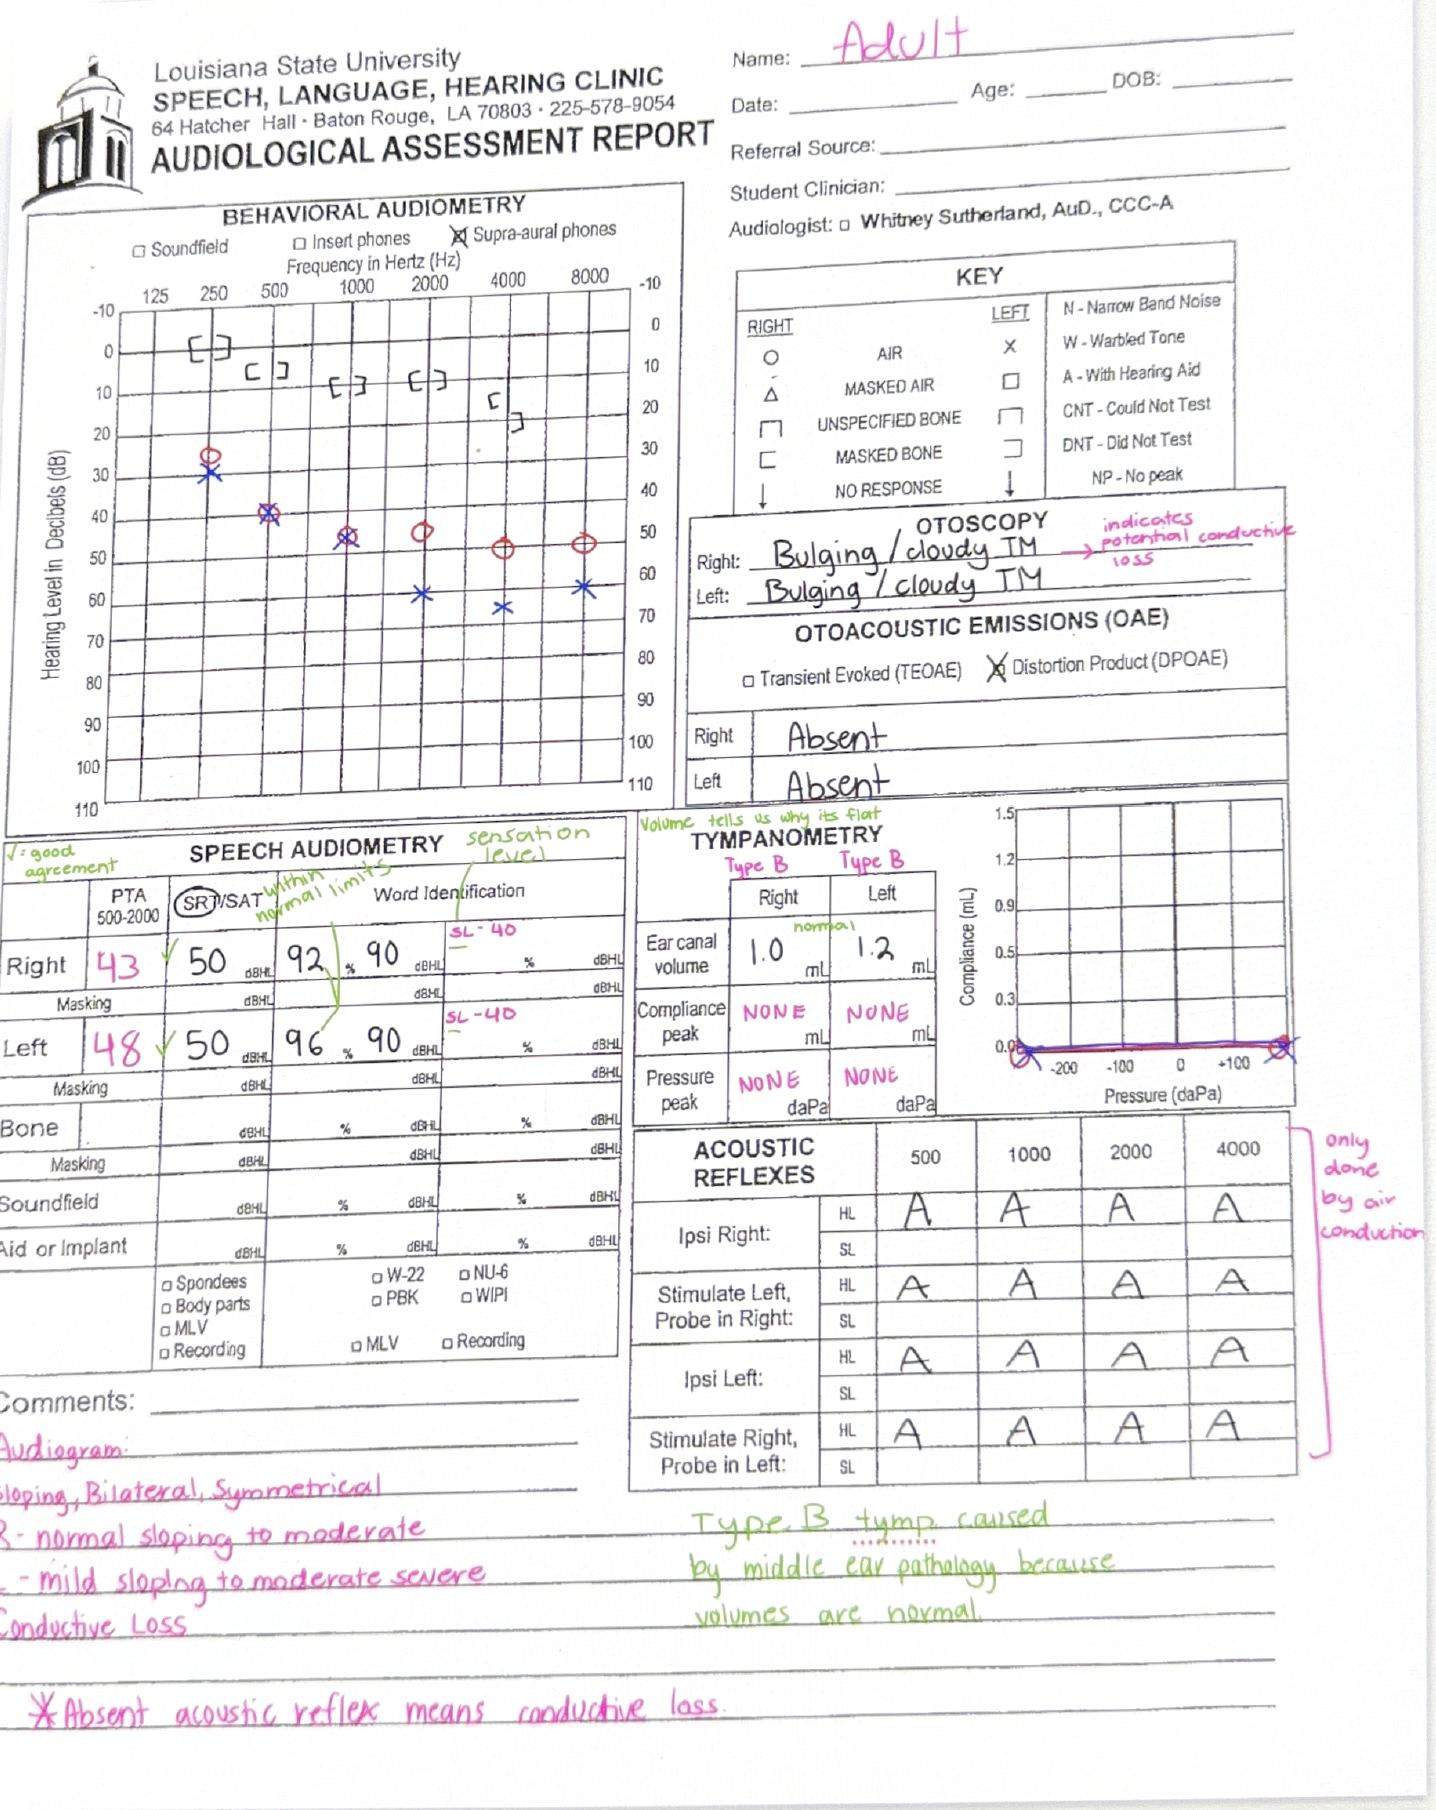 Louisiana State University
SPEECH, LANGUAGE, HEARING CLINIC
64 Hatcher Hall · Baton Rouge, LA 70803 · 225-578-9054
AUDIOLOGICAL ASSESSMENT REPORT
Name: Adult
Date: Age: DOB:
Referral Source:
Student Clinician:
Audiologist: □ Whitney Sutherland, AuD., CCC-A
BEHAVIORAL AUDIOMETRY
□ Soundfield □ Insert phones ☒ Supra-aural phones
Frequency in Hertz (Hz)
125 250 500 1000 2000 4000 8000
Hearing Level in Decibels (dB)
-10 -10
0 0
10 10
20 20
30 30
40 40
50 50
60 60
70 70
80 80
90 90
100 100
110 110
KEY
RIGHT LEFT
O AIR X
△ MASKED AIR □
UNSPECIFIED BONE
[ MASKED BONE ]
↓ NO RESPONSE ↓
N - Narrow Band Noise
W - Warbled Tone
A - With Hearing Aid
CNT - Could Not Test
DNT - Did Not Test
NP - No peak
OTOSCOPY
Right: Bulging / cloudy TM → indicates
potential conductive
loss
Left: Bulging / cloudy TM
OTOACOUSTIC EMISSIONS (OAE)
□ Transient Evoked (TEOAE) ☒ Distortion Product (DPOAE)
Right Absent
Left Absent
√ = good
agreement
SPEECH AUDIOMETRY
sensation
level
within
normal limits
PTA
500-2000
SRT/SAT
Word Identification
SL - 40
Right 43 ✓ 50 dBHL 92 % 90 dBHL % dBHL
Masking dBHL dBHL dBHL
SL - 40
Left 48 ✓ 50 dBHL 96 % 90 dBHL % dBHL
Masking dBHL dBHL dBHL
Bone dBHL % dBHL % dBHL
Masking dBHL dBHL dBHL
Soundfield dBHL % dBHL % dBHL
Aid or Implant dBHL % dBHL % dBHL
□ Spondees □ W-22 □ NU-6
□ Body parts □ PBK □ WIPI
□ MLV
□ Recording □ MLV □ Recording
Volume tells us why its flat
TYMPANOMETRY
Type B Type B
Right Left
normal
Ear canal volume 1.0 mL 1.2 mL
Compliance peak NONE mL NONE mL
Pressure peak NONE daPa NONE daPa
Compliance (mL)
1.5
1.2
0.9
0.5
0.3
0.0
-200 -100 0 +100
Pressure (daPa)
ACOUSTIC REFLEXES 500 1000 2000 4000
Ipsi Right: HL A A A A
SL
Stimulate Left, Probe in Right: HL A A A A
SL
Ipsi Left: HL A A A A
SL
Stimulate Right, Probe in Left: HL A A A A
SL
only
done
by air
conduction
Comments:
Audiogram:
sloping, Bilateral, Symmetrical
R - normal sloping to moderate
L - mild sloping to moderate severe
Conductive Loss
Type B tymp. caused
by middle ear pathology because
volumes are normal.
* Absent acoustic reflex means conductive loss.